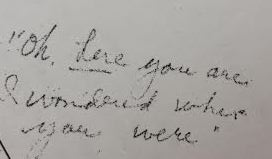 "Oh, here you are
I wondered where
you were"